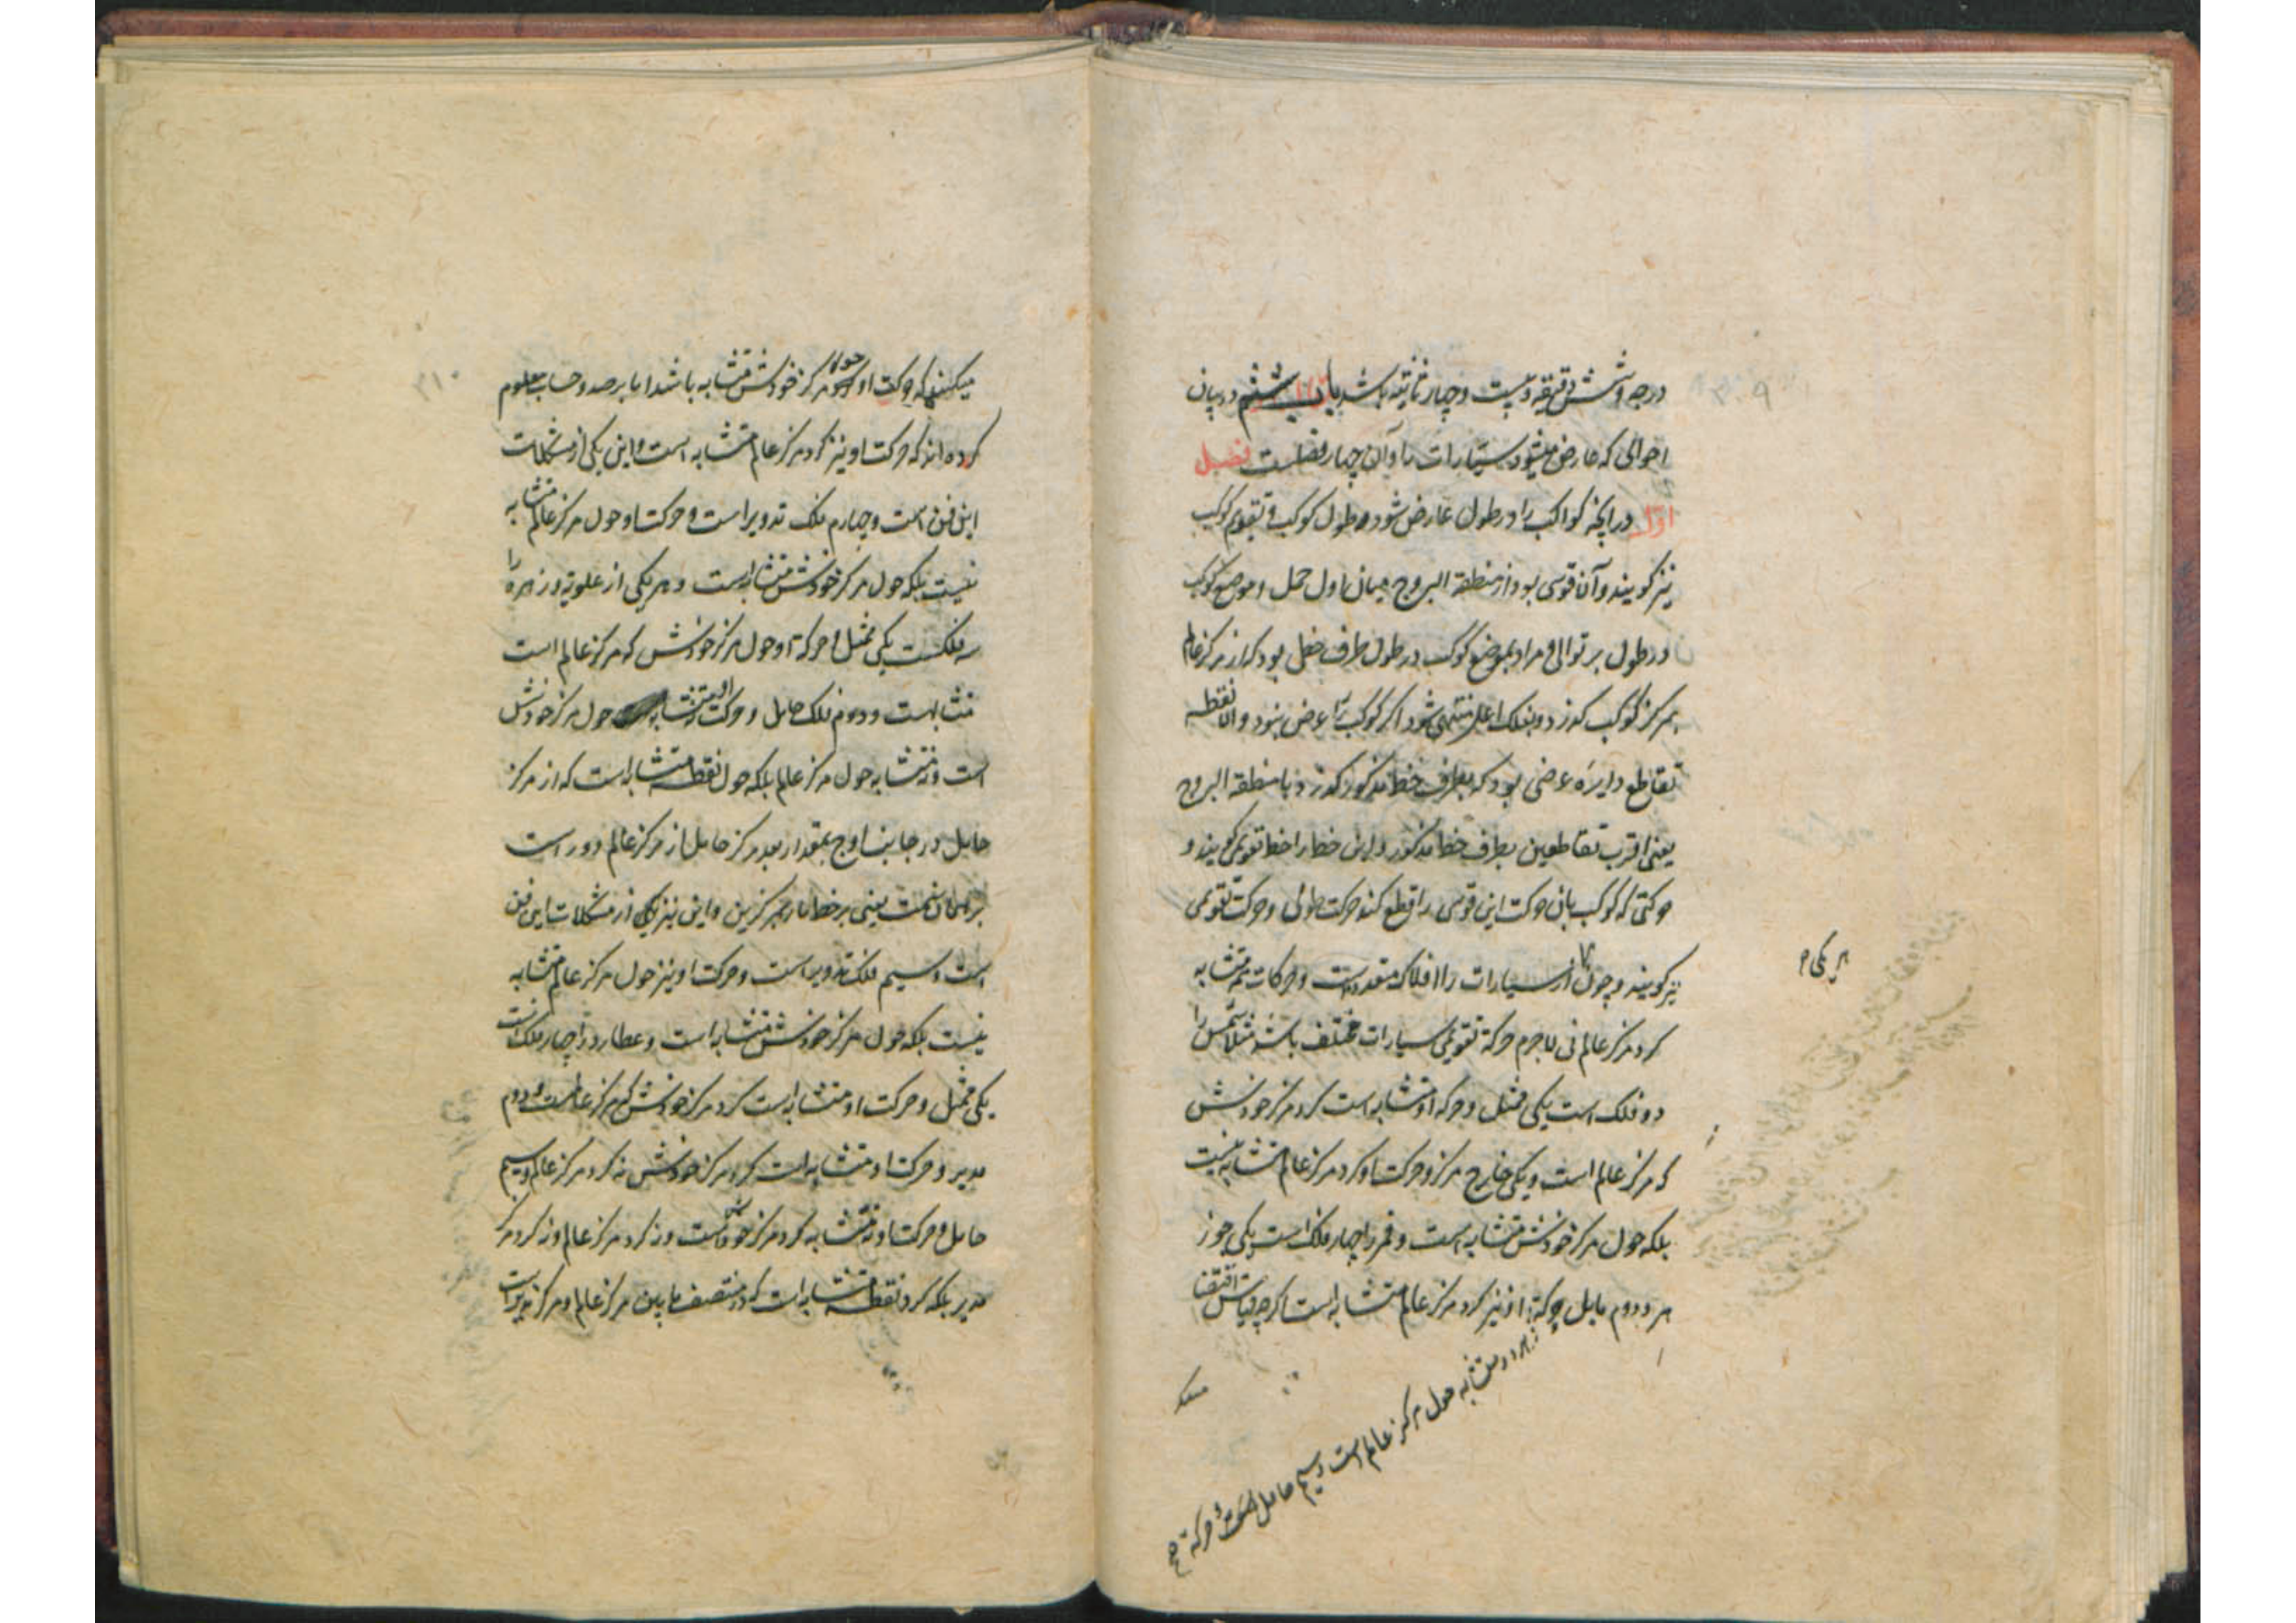 ۳۰۹
درجه و شش دقیقه و بیست و چهار ثانیه باشد باب ششم در بیان
احوالی که عارض میشود سیارات را و آن چهار فصلست فصل
اول در آنچه کواکب را در طول عارض شود و طول کوکب و تقویم کوکب
نیز گویند و آن قوسی بود از منطقة البروج میان اول حمل و موضع کوکب
در طول بر توالی و مراد بموضع کوکب در طول طرف خطی بود که از مرکز عالم
بمرکز کوکب گذرد و بفلک اعلی منتهی شود اگر کوکب را عرض نبود و الا نقطه
تقاطع دایره عرضی بود که بطرف خط مذکور گذرد با منطقة البروج
یعنی اقرب تقاطعین بطرف خط مذکور و این خط را خط تقویمی گویند و
حرکتی که کوکب بان حرکت این قوس را قطع کند حرکت طولی و حرکت تقویمی
نیز گویند و چون از سیارات را افلاک متعدد است و حرکات همه متشابه
هر یکی
گرد مرکز عالم نی لاجرم حرکة تقویمی سیارات مختلف باشد مثلا شمس را
دو فلک است یکی ممثل و حرکة او متشابه است گرد مرکز خودش
که مرکز عالم است و یکی خارج مرکز و حرکت او گرد مرکز عالم متشابه نیست
بلکه حول مرکز خودش متشابه است و قمر را چهار فلک است یکی جوز
هر و دوم مایل و حرکة او نیز گرد مرکز عالم متشابه است اگرچه قیاس اقتضا
متشابه حول مرکز عالم است و سیم حامل است و حرکة
میکند
۳۱۰
میکند که حرکت او حول مرکز خودش متشابه باشد اما برصد و حساب معلوم
کرده اند که حرکت او نیز گرد مرکز عالم متشابه است و این یکی از مشکلات
این فن است و چهارم فلک تدویر است و حرکت او حول مرکز عالم متشابه
نیست بلکه حول مرکز خودش متشابه است و هر یکی از علویه و زهره را
سه فلکست یکی ممثل و حرکة او حول مرکز خودش که مرکز عالم است
متشابه است و دوم فلک حامل و حرکت او نه متشابه حول مرکز خودش
است و نه متشابه حول مرکز عالم بلکه حول نقطه متشابه است که از مرکز
حامل در جانب اوج بمقدار بعد مرکز حامل از مرکز عالم دور است
بر همان سمت یعنی بر خط مار بمرکزین و این نیز یکی از مشکلات این فن
است و سیم فلک تدویر است و حرکت او نیز حول مرکز عالم متشابه
نیست بلکه حول مرکز خودش متشابه است و عطارد را چهار فلک است
یکی ممثل و حرکت او متشابه است گرد مرکز خودش که مرکز عالم است و دوم
مدیر و حرکت او متشابه است گرد مرکز خودش نه گرد مرکز عالم و سیم
حامل و حرکت او نه متشابه گرد مرکز خودش است و نه گرد مرکز عالم و نه گرد مرکز
مدیر بلکه گرد نقطه متشابه است که در منتصف ما بین مرکز عالم و مرکز مدیر است